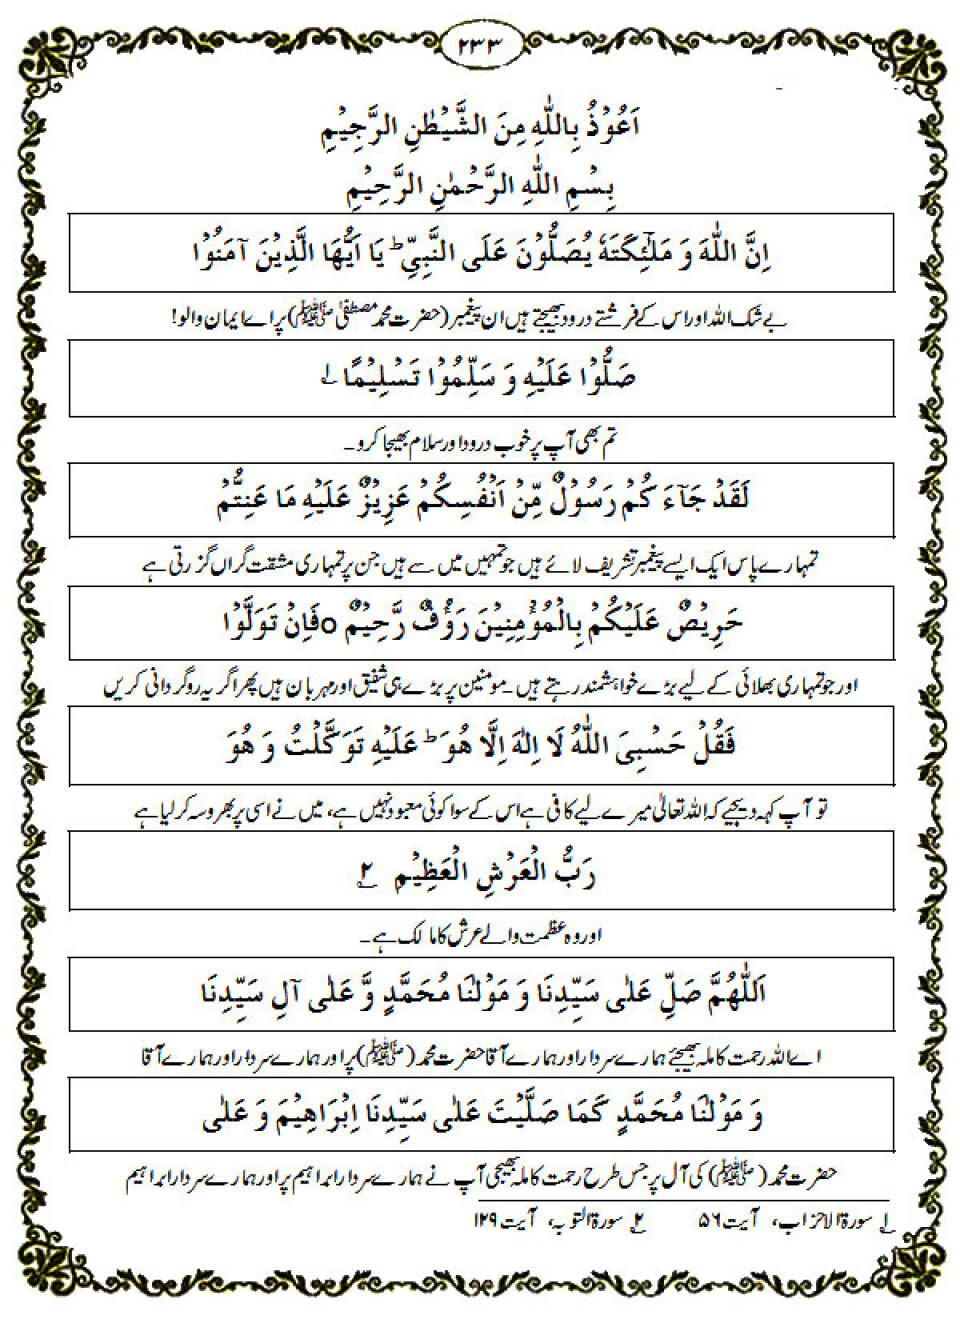 ۲۳۳
اَعُوْذُ بِاللّٰهِ مِنَ الشَّيْطٰنِ الرَّجِيْمِ
بِسْمِ اللّٰهِ الرَّحْمٰنِ الرَّحِيْمِ
اِنَّ اللّٰهَ وَ مَلٰٓئِكَتَهٗ يُصَلُّوْنَ عَلَى النَّبِيِّ ؕ يَا اَيُّهَا الَّذِيْنَ آمَنُوْا
بے شک اللہ اور اس کے فرشتے درود بھیجتے ہیں ان پیغمبر (حضرت محمد مصطفیٰ ﷺ) پر اے ایمان والو!
صَلُّوْا عَلَيْهِ وَ سَلِّمُوْا تَسْلِيْمًا ؂۱
تم بھی آپ پر خوب درود اور سلام بھیجا کرو۔
لَقَدْ جَآءَ كُمْ رَسُوْلٌ مِّنْ اَنْفُسِكُمْ عَزِيْزٌ عَلَيْهِ مَا عَنِتُّمْ
تمہارے پاس ایک ایسے پیغمبر تشریف لائے ہیں جو تمہیں میں سے ہیں جن پر تمہاری مشقت گراں گزرتی ہے
حَرِيْصٌ عَلَيْكُمْ بِالْمُؤْمِنِيْنَ رَؤُفٌ رَّحِيْمٌ o فَاِنْ تَوَلَّوْا
اور جو تمہاری بھلائی کے لیے بڑے خواہشمند رہتے ہیں۔ مومنین پر بڑے ہی شفیق اور مہربان ہیں پھر اگر یہ روگردانی کریں
فَقُلْ حَسْبِيَ اللّٰهُ لَا اِلٰهَ اِلَّا هُوَ ؕ عَلَيْهِ تَوَكَّلْتُ وَ هُوَ
تو آپ کہہ دیجیے کہ اللہ تعالیٰ میرے لیے کافی ہے اس کے سوا کوئی معبود نہیں ہے، میں نے اسی پر بھروسہ کر لیا ہے
رَبُّ الْعَرْشِ الْعَظِيْمِ ؂۲
اور وہ عظمت والے عرش کا مالک ہے۔
اَللّٰهُمَّ صَلِّ عَلٰى سَيِّدِنَا وَ مَوْلٰنَا مُحَمَّدٍ وَّ عَلٰى آلِ سَيِّدِنَا
اے اللہ رحمت کاملہ بھیجئے ہمارے سردار اور ہمارے آقا حضرت محمد (ﷺ) پر اور ہمارے سردار اور ہمارے آقا
وَ مَوْلٰنَا مُحَمَّدٍ كَمَا صَلَّيْتَ عَلٰى سَيِّدِنَا اِبْرَاهِيْمَ وَ عَلٰى
حضرت محمد (ﷺ) کی آل پر جس طرح رحمت کاملہ بھیجی آپ نے ہمارے سردار ابراہیم پر اور ہمارے سردار ابراہیم
؂۱ سورۃ الاحزاب، آیت ۵۶ ؂۲ سورۃ التوبہ، آیت ۱۲۹